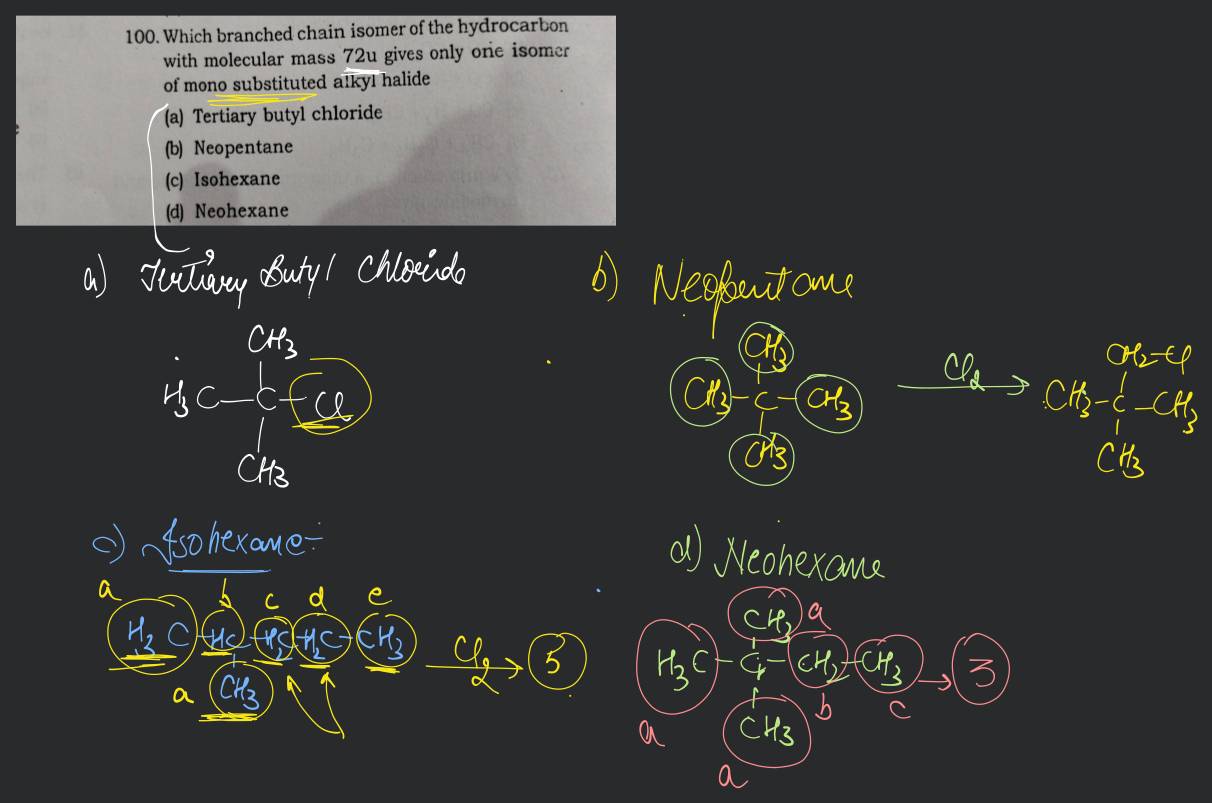 100. Which branched chain isomer of the hydrocarbon
with molecular mass 72u gives only one isomer
of mono substituted alkyl halide
(a) Tertiary butyl chloride
(b) Neopentane
(c) Isohexane
(d) Neohexane
a) Tertiary Butyl Chloride
CH3
H3C-C-Cl
CH3
b) Neopentane
CH3
CH3-C-CH3
CH3
Cl2
CH2-Cl
CH3-C-CH3
CH3
c) Isohexane:-
a b c d e
H3C-HC-H2C-H2C-CH3
a CH3
Cl2
5
d) Neohexane
CH3 a
H3C-C-CH2-CH3
a b c
CH3
a
3